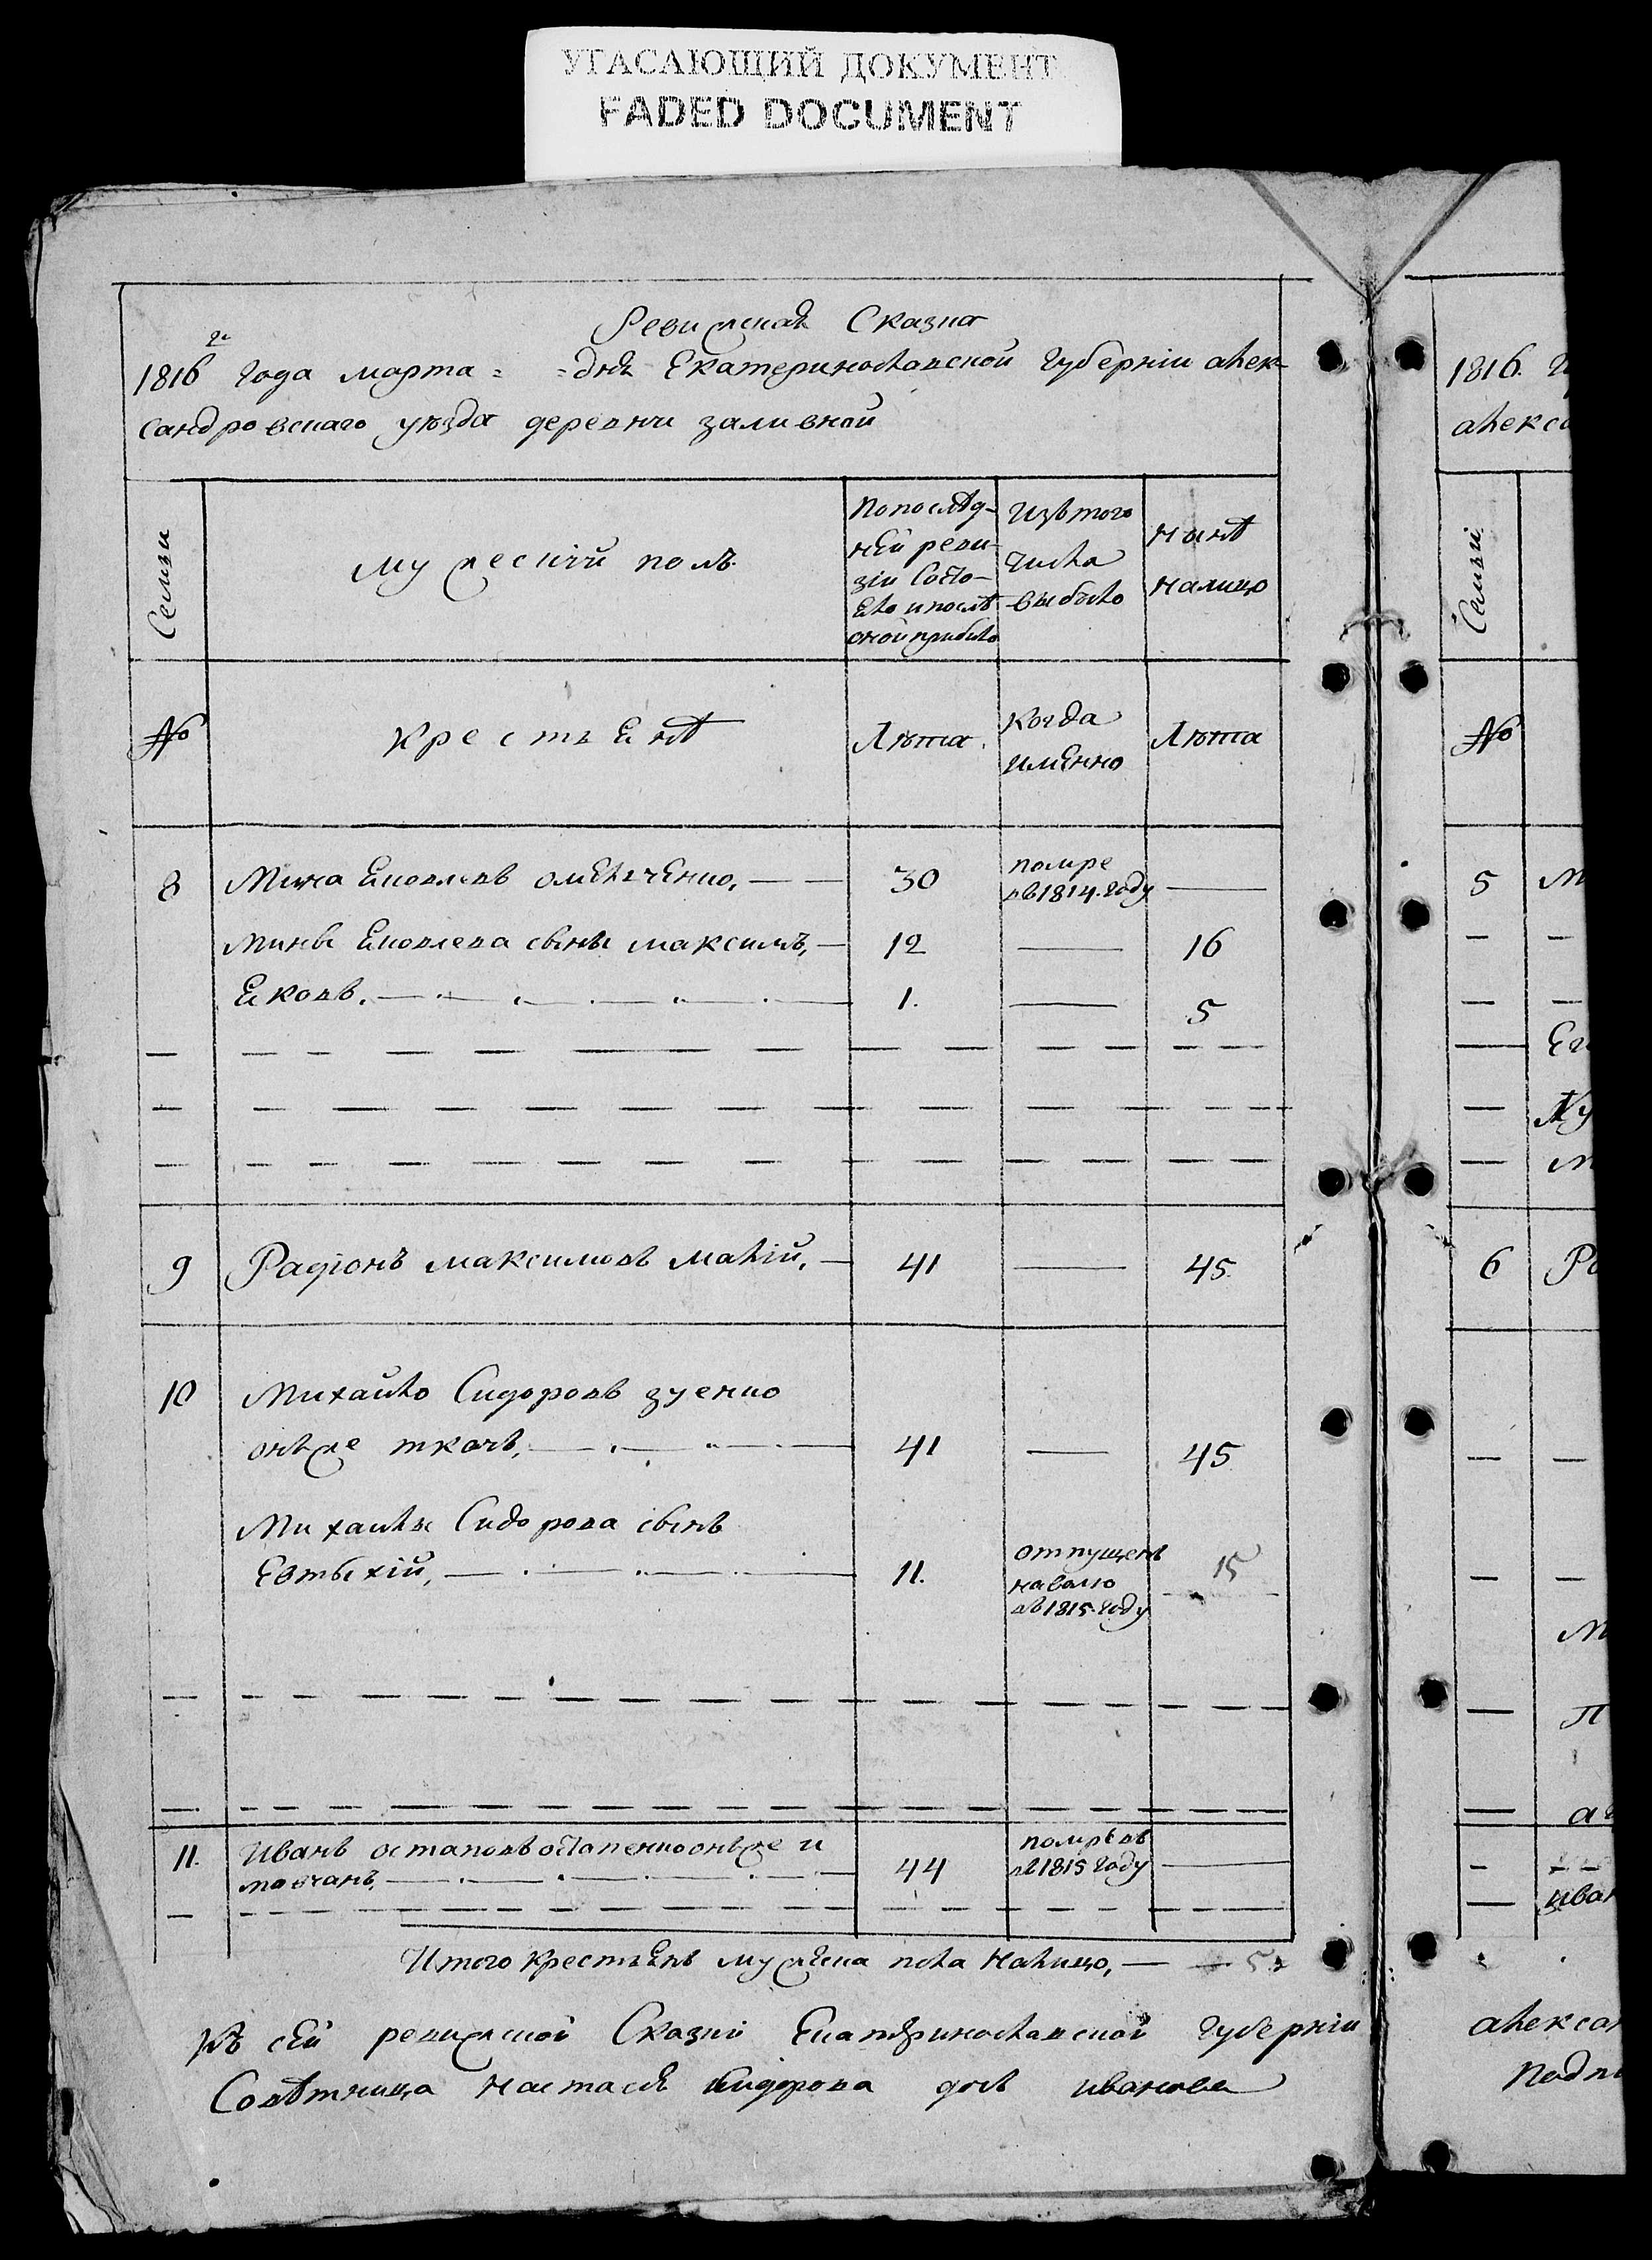 УГАСАЮЩИЙ ДОКУМЕНТ
FADED DOCUMENT
Ревижская Сказка
1816 го года марта = = дня Екатеринославской губернии алек-
сандровскаго уѣзда деревни заливной
Семьи
мужеский полъ
По послѣд-
ней реви-
зіи Состо-
яло и послѣ
оной прибыло
Изъ того
числа
выбыло
нынѣ
налицо
№
Крестьянѣ
Лѣта
когда
именно
Лѣта
8
Мина Яковлевъ омельченко,
30
помре
въ 1814. году
Мины Яковлева сыны максимъ,
12
16
Яковъ.
1.
5
9
Радіонъ максимовъ малій,
41
45
10
Михайло Сидоровъ зуенко
онъже ткачъ,
41
45
Михайлы Сидорова сынъ
Евтыхій,
11.
отпущенъ
наволю
въ 1815. году
15
11.
Иванъ остаповъ остапенко онъже и
мовчанъ,
44
помре въ
1815 году
Итого крестьянъ мужеска пола налицо, 5
Къ сей ревижской Сказки Екатеринославской губерніи
Совѣтница настася Сидорова дочь иванова
1816.
алексо
Семьи
№
5
6
алексан
Подпи